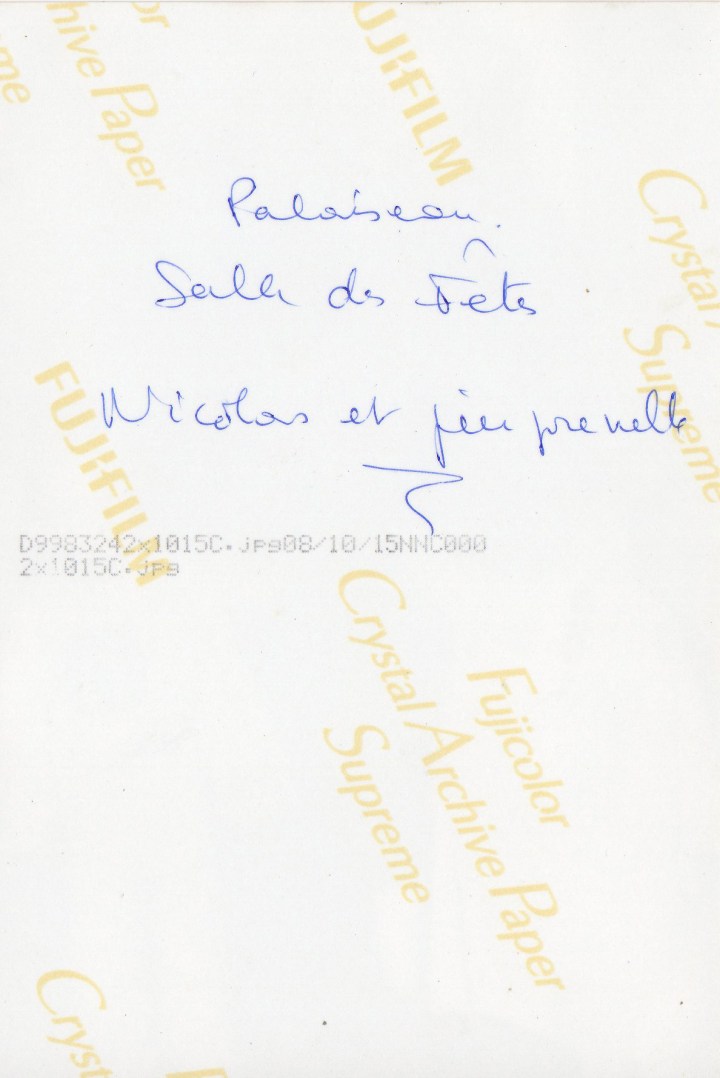 or
hive Paper
me
FUJIFILM
Palaiseau.
Salle des Fêtes
Crystal
Supreme
Nicolas et pimprenelle
FUJIFILM
D9983242x1015C.jpg08/10/15NNC000
2x1015C.jpg
Fujicolor
Crystal Archive Paper
Supreme
Cryst